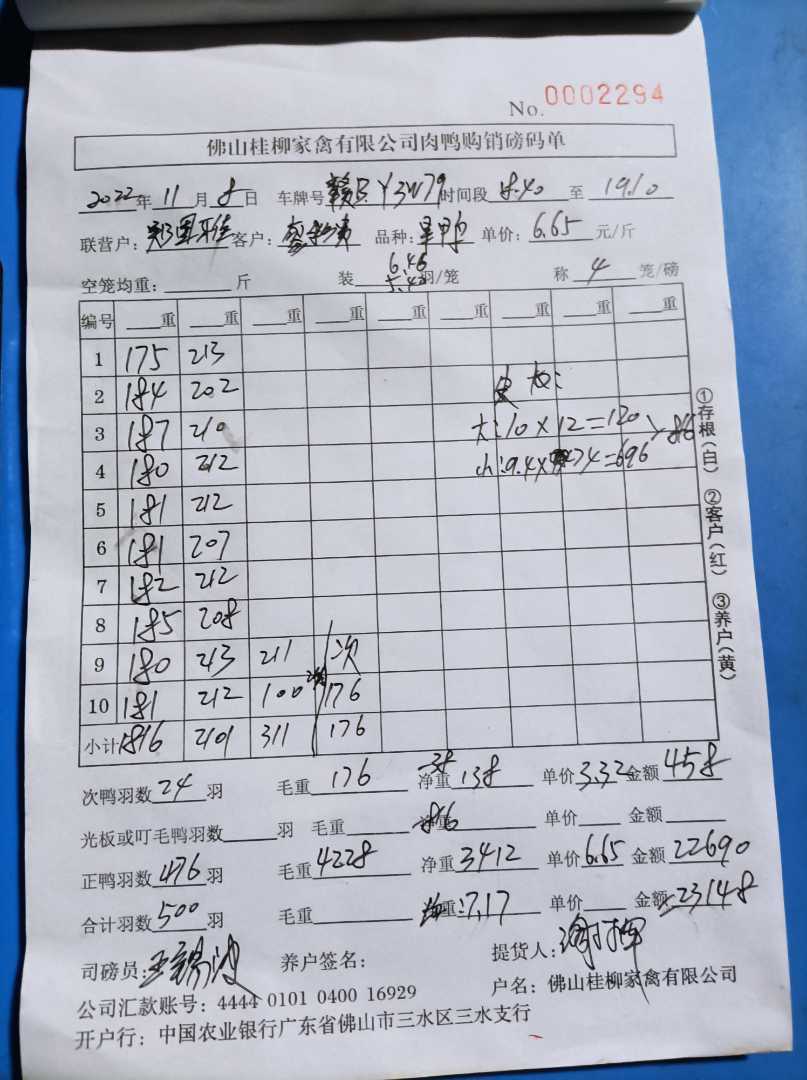 No. 0002294
佛山桂柳家禽有限公司肉鸭购销磅码单
2022年 11月 8日 车牌号 赣B Y3W79 时间段 18.40 至 19.10
联营户: 客户: 品种: 单价: 6.65 元/斤
空笼均重: 斤 装 6.46 5.48 羽/笼 称 4 笼/磅
编号 重 重 重 重 重 重 重 重
1 175 213
2 184 202
3 187 210 大:10×12=120
4 180 212 小:9.4×74=696 816
5 181 212
6 181 207
7 182 212
8 185 208
9 180 213 211 次
10 181 212 100 176
小计 1816 2101 311 176
次鸭羽数 24 羽 毛重 176 -38 净重 138 单价 3.32 金额 458
光板或叮毛鸭羽数 羽 毛重 816 单价 金额
正鸭羽数 476 羽 毛重 4228 净重 3412 单价 6.65 金额 22690
合计羽数 500 羽 毛重 重:7.17 单价 金额 23148
司磅员: 养户签名: 提货人:
公司汇款账号: 4444 0101 0400 16929 户名: 佛山桂柳家禽有限公司
开户行: 中国农业银行广东省佛山市三水区三水支行
①存根(白) ②客户(红) ③养户(黄)